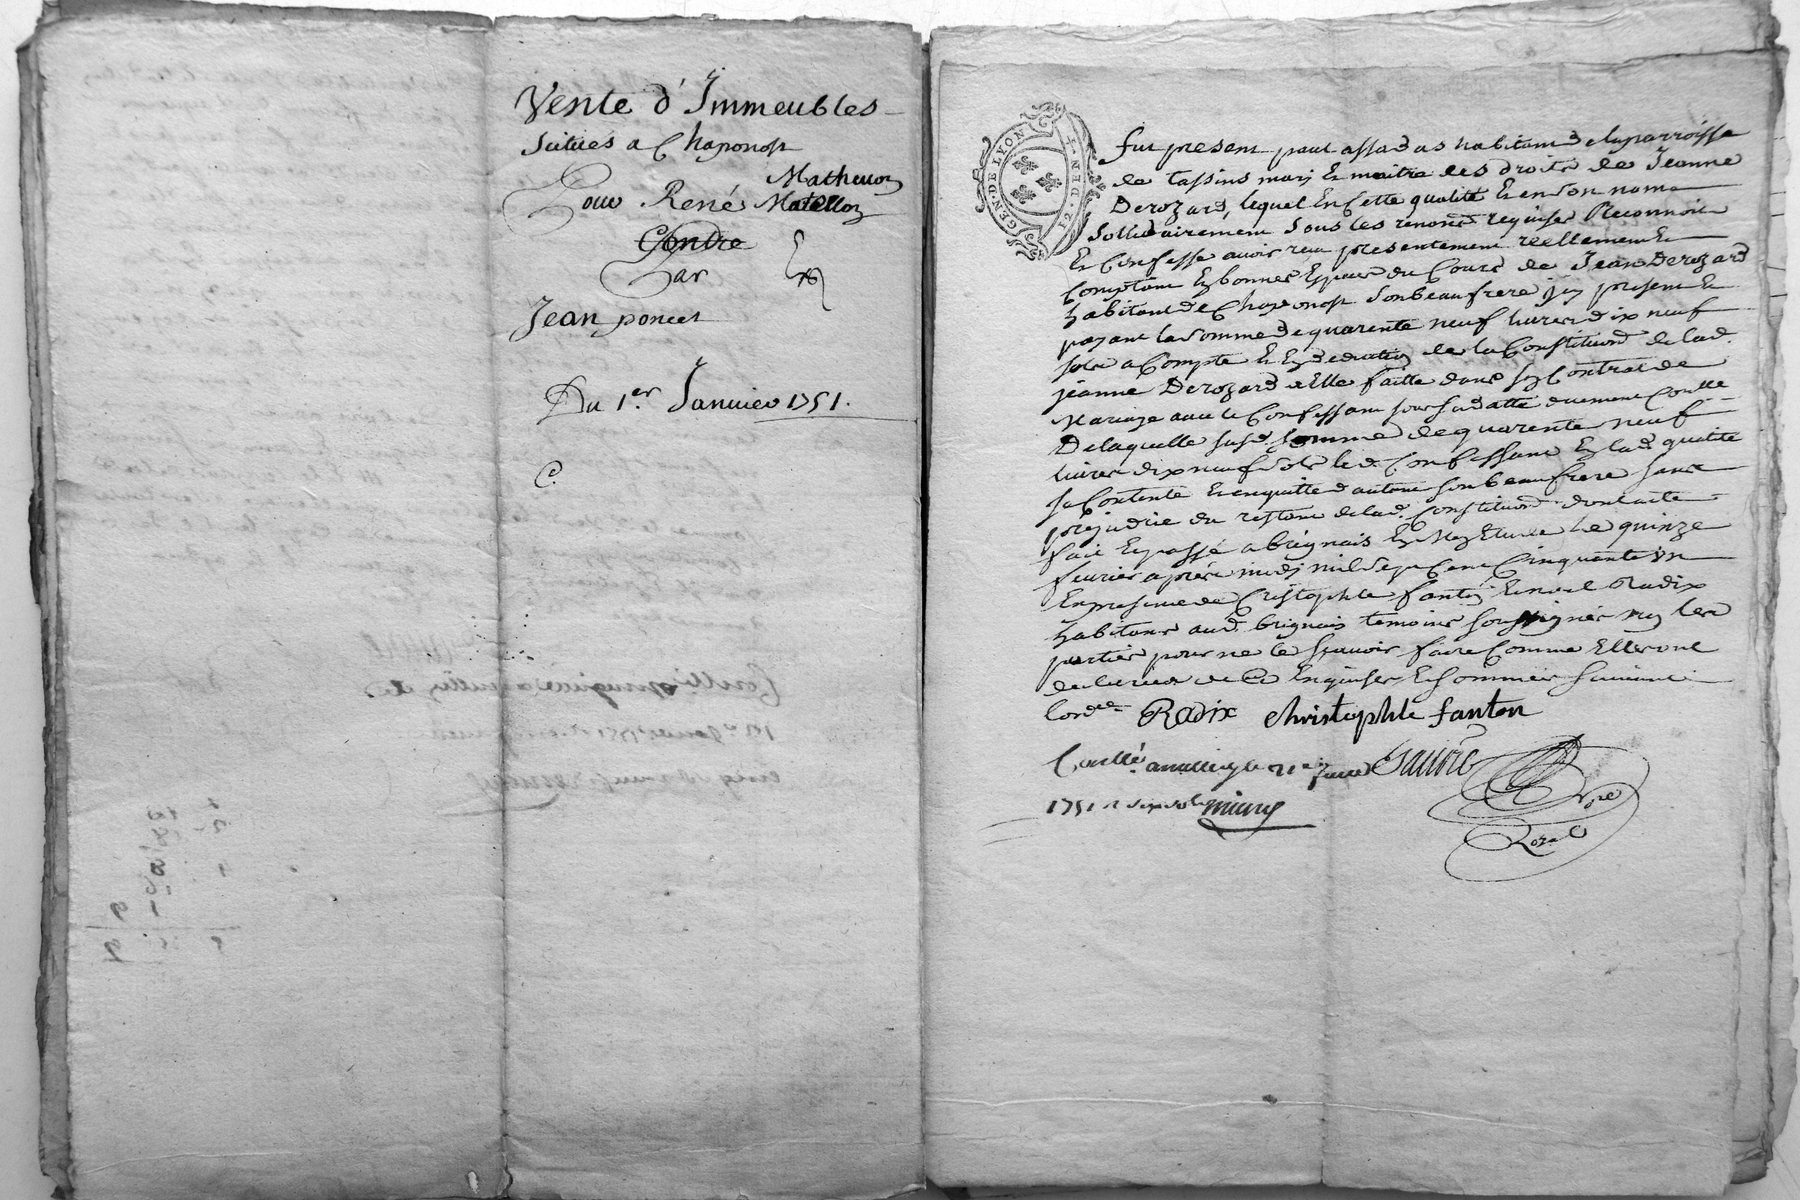 Vente d'Immeubles
Scitués a Chaponost
Pour René Matheuon
Matellon
Contre
Par
Jean poncet
Du 1.er Januier 1751.
C.
GEN. DE LYON
fut present paul assadas habitant de la parroisse
de tassins mary Et maitre des droits de Jeanne
Derozard, lequel En Cette qualité Et en son nom
sollidairement sous les renons requises Reconnoit
Et Confesse auoir reçu presentement reellement Et
Comptant En bonnes Espaces du Cours de Jean Derozard
habitant de Chaponost son beaufrere jcy present Et
payant la somme de quarente neuf liures dix neuf
sols a Compte Et En deduction de la Constitution de lad.
jeanne Derozard a Elle faitte dans son Contrat de
Mariage auec le Confessant sous sa datte duement Conllé
De laquelle susd. somme de quarente neuf
liures dix neuf sols led. Confessant En lad. qualité
se Contente Et en quitte d'autant son beaufrere sans
prejudice du restant de lad. Constitution dont acte
fait Et passé a brignais En Mon Etude Le quinze
feurier après midy mil sept Cent Cinquante Un
En presence de Cristophle fanton Et noel Radix
habitans aud. brignais temoins soussignés non les
parties pour ne le sçauoir faire Comme Elles ont
declaré de Ce Enquises Et sommées suiuant
lord.ce Radix christophle fanton
Conllé a le 21e
1751 R six sols
Royal